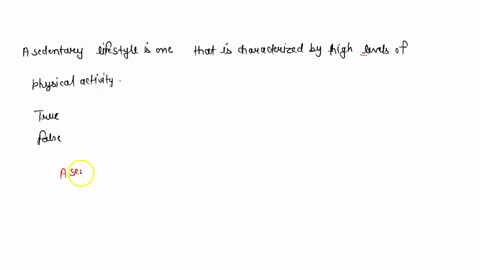 A sedentary lifestyle is one that is characterized by high levels of
physical activity.
True
false
A se